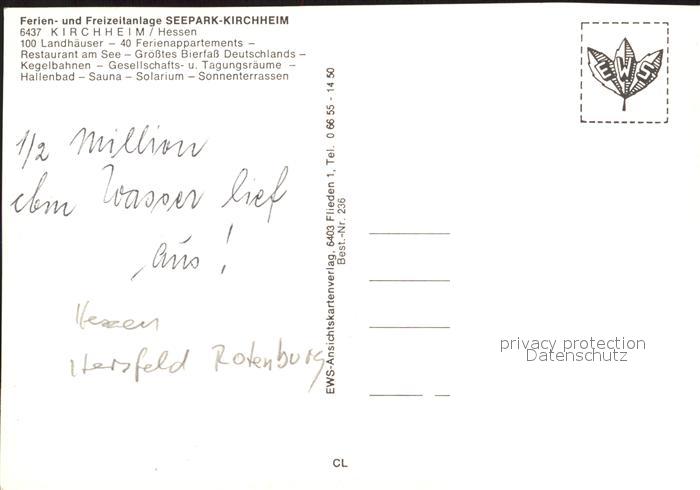 Ferien- und Freizeitanlage SEEPARK-KIRCHHEIM
6437 KIRCHHEIM / Hessen
100 Landhäuser – 40 Ferienappartements –
Restaurant am See – Größtes Bierfaß Deutschlands –
Kegelbahnen – Gesellschafts- u. Tagungsräume –
Hallenbad – Sauna – Solarium – Sonnenterrassen
1/2 Million
cbm Wasser lief
aus!
Hessen
Hersfeld Rotenburg
EWS-Ansichtskartenverlag, 6403 Flieden 1, Tel. 0 66 55 - 14 50
Best.-Nr. 236
EWS
privacy protection
Datenschutz
CL